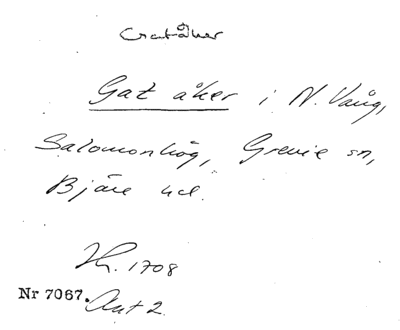 Gatåker
Gat åker i N. Vång,
Salomonhög, Grevie sn,
Bjäre hd.
Kr. 1708
Nr 7067. Akt 2.